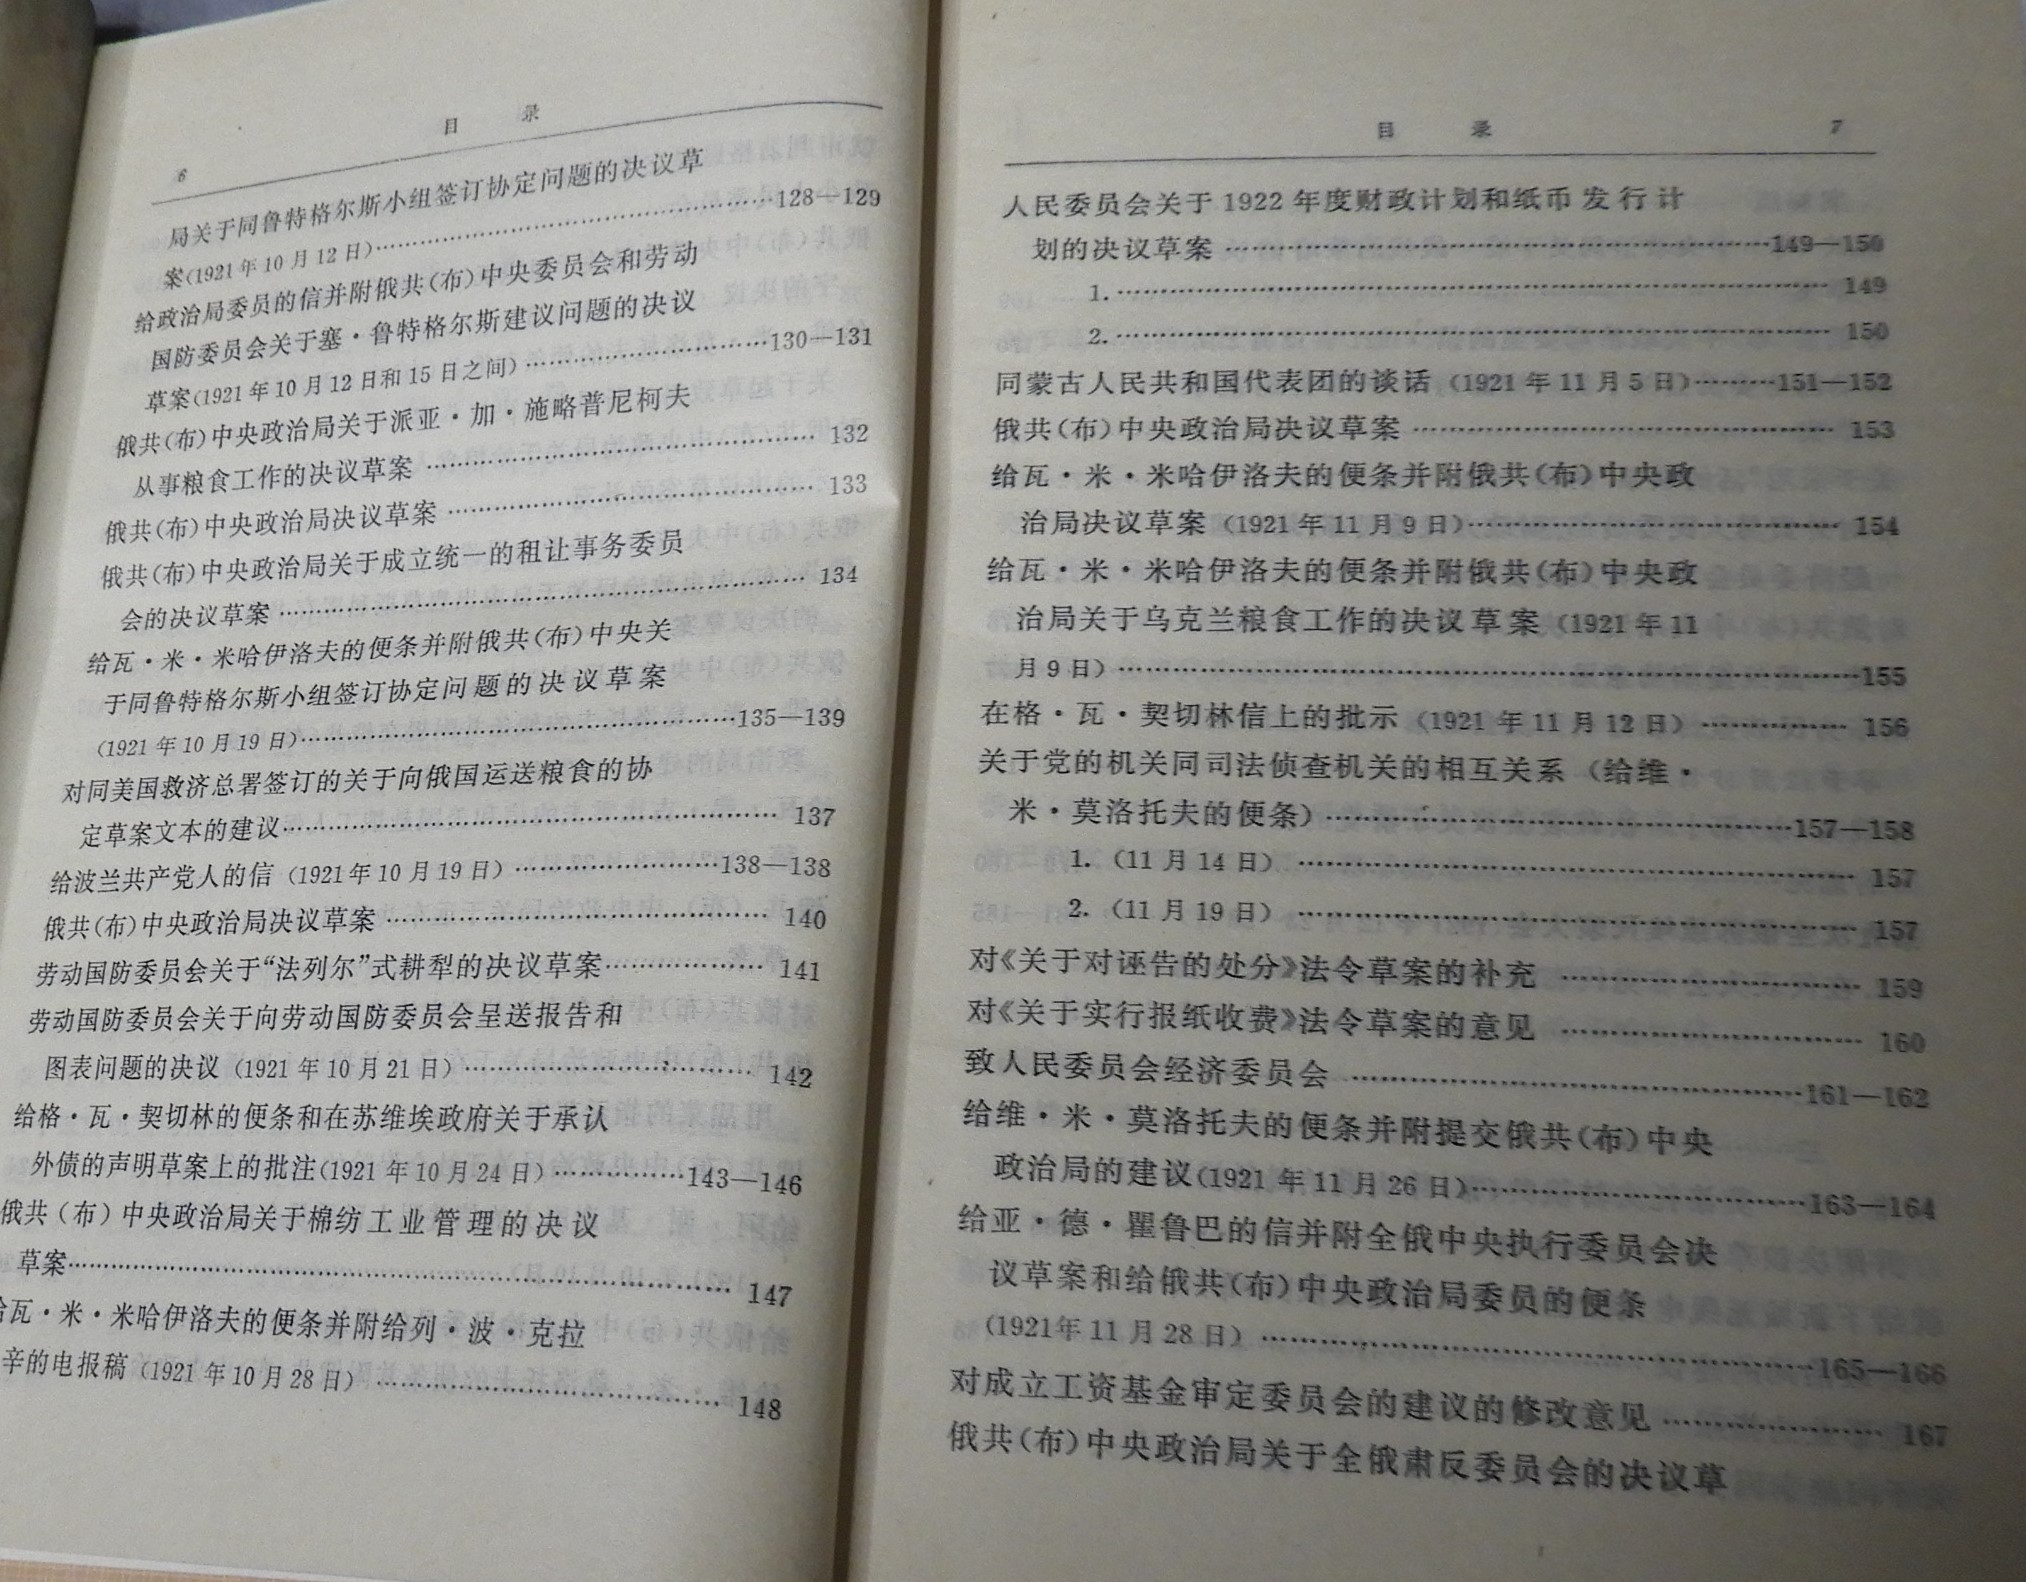 目 录
6
局关于同鲁特格尔斯小组签订协定问题的决议草
案(1921年10月12日)……128—129
给政治局委员的信并附俄共(布)中央委员会和劳动
国防委员会关于塞·鲁特格尔斯建议问题的决议
草案(1921年10月12日和15日之间)……130—131
俄共(布)中央政治局关于派亚·加·施略普尼柯夫
从事粮食工作的决议草案……132
俄共(布)中央政治局决议草案……133
俄共(布)中央政治局关于成立统一的租让事务委员
会的决议草案……134
给瓦·米·米哈伊洛夫的便条并附俄共(布)中央关
于同鲁特格尔斯小组签订协定问题的决议草案
(1921年10月19日)……135—139
对同美国救济总署签订的关于向俄国运送粮食的协
定草案文本的建议……137
给波兰共产党人的信(1921年10月19日)……138—138
俄共(布)中央政治局决议草案……140
劳动国防委员会关于“法列尔”式耕犁的决议草案……141
劳动国防委员会关于向劳动国防委员会呈送报告和
图表问题的决议(1921年10月21日)……142
给格·瓦·契切林的便条和在苏维埃政府关于承认
外债的声明草案上的批注(1921年10月24日)……143—146
俄共(布)中央政治局关于棉纺工业管理的决议
草案……147
给瓦·米·米哈伊洛夫的便条并附给列·波·克拉
辛的电报稿(1921年10月28日)……148
目 录 7
人民委员会关于1922年度财政计划和纸币发行计
划的决议草案……149—150
1.……149
2.……150
同蒙古人民共和国代表团的谈话(1921年11月5日)……151—152
俄共(布)中央政治局决议草案……153
给瓦·米·米哈伊洛夫的便条并附俄共(布)中央政
治局决议草案(1921年11月9日)……154
给瓦·米·米哈伊洛夫的便条并附俄共(布)中央政
治局关于乌克兰粮食工作的决议草案(1921年11
月9日)……155
在格·瓦·契切林信上的批示(1921年11月12日)……156
关于党的机关同司法侦查机关的相互关系(给维·
米·莫洛托夫的便条)……157—158
1.(11月14日)……157
2.(11月19日)……157
对《关于对诬告的处分》法令草案的补充……159
对《关于实行报纸收费》法令草案的意见……160
致人民委员会经济委员会……161—162
给维·米·莫洛托夫的便条并附提交俄共(布)中央
政治局的建议(1921年11月26日)……163—164
给亚·德·瞿鲁巴的信并附全俄中央执行委员会决
议草案和给俄共(布)中央政治局委员的便条
(1921年11月28日)……165—166
对成立工资基金审定委员会的建议的修改意见……167
俄共(布)中央政治局关于全俄肃反委员会的决议草